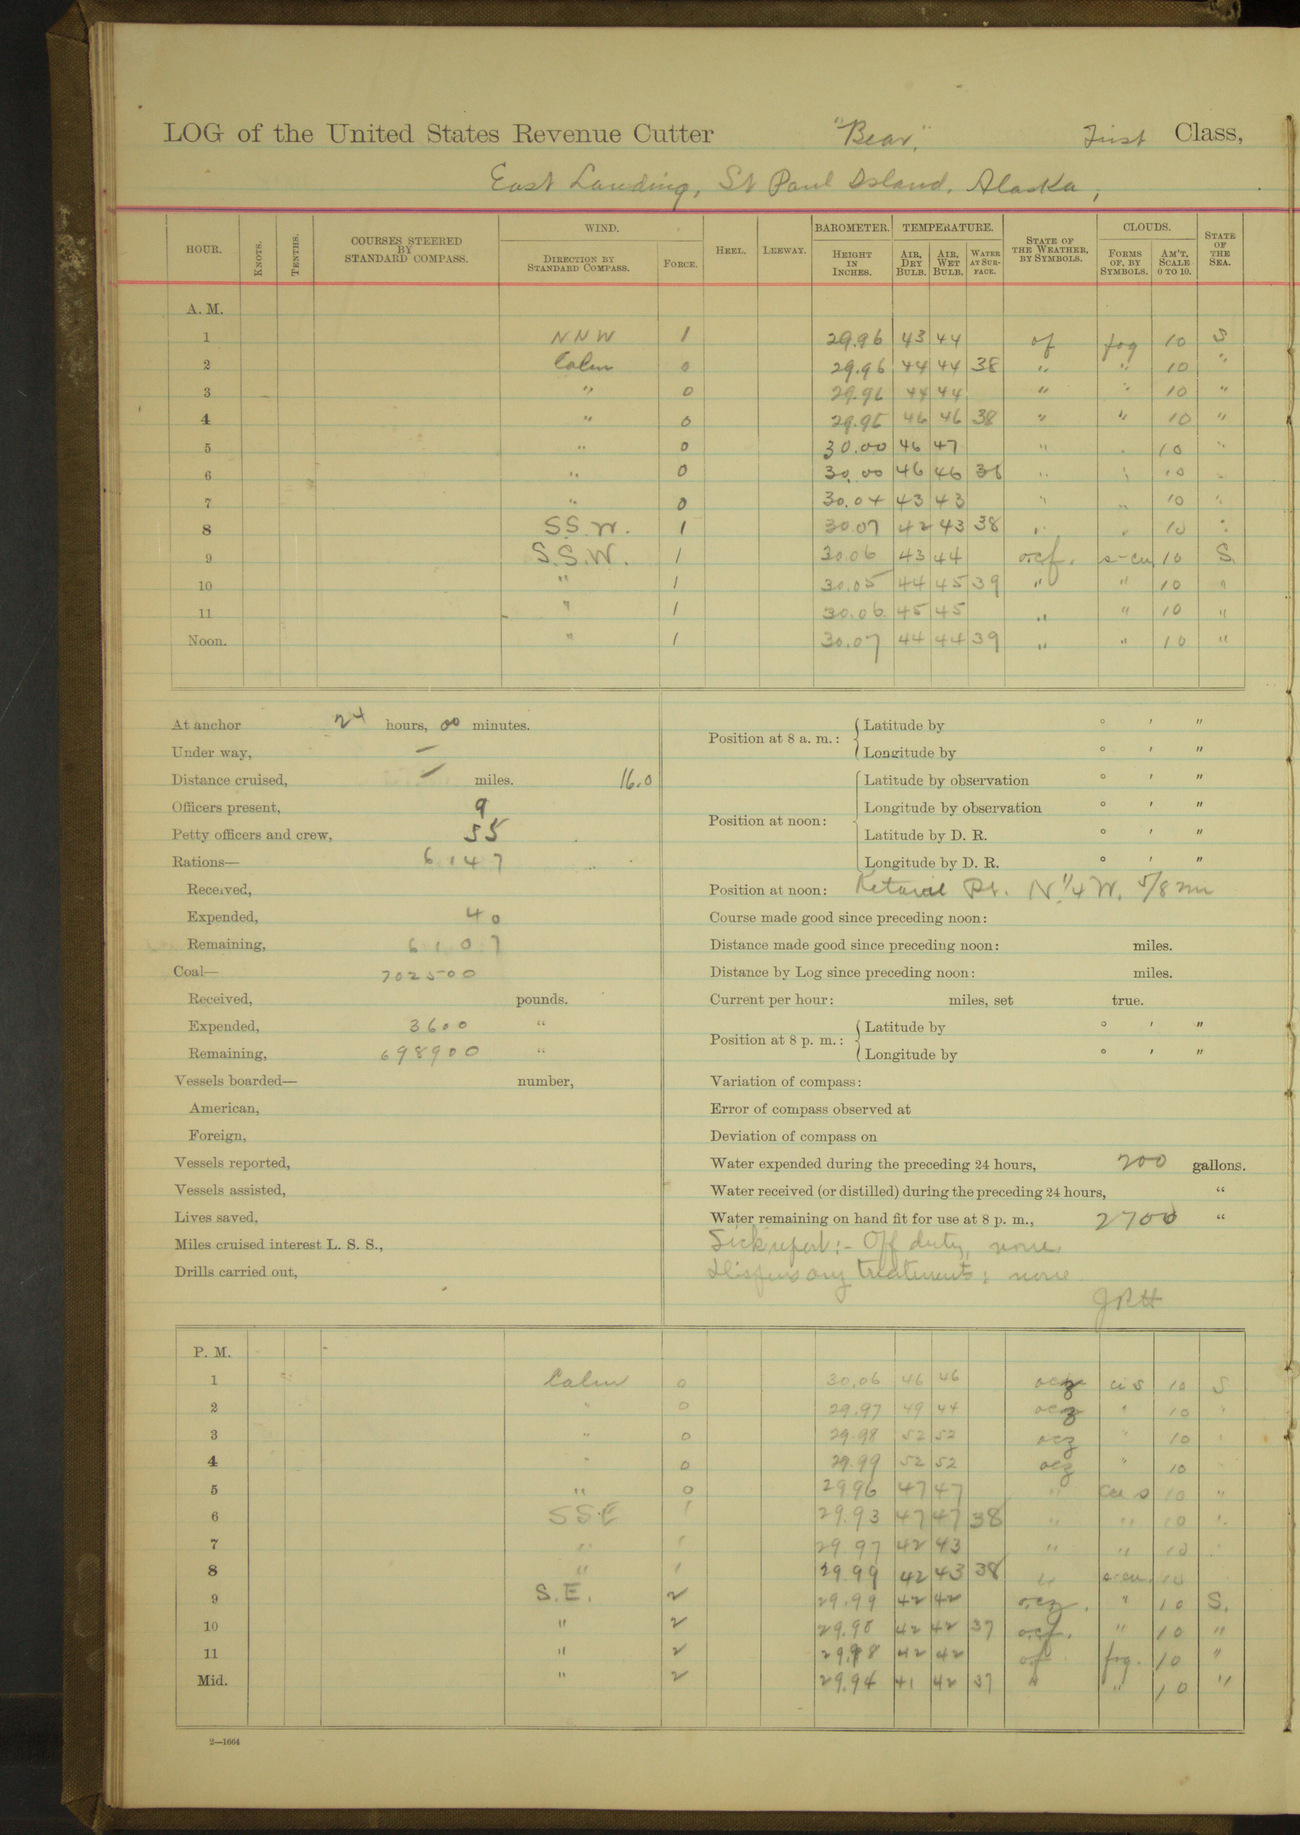 LOG of the United States Revenue Cutter "Bear," First Class,
East Landing, St Paul Island, Alaska,
HOUR. KNOTS. TENTHS. COURSES STEERED BY STANDARD COMPASS. WIND. DIRECTION BY STANDARD COMPASS. FORCE. HEEL. LEEWAY. BAROMETER. HEIGHT IN INCHES. TEMPERATURE. AIR, DRY BULB. AIR, WET BULB. WATER AT SURFACE. STATE OF THE WEATHER, BY SYMBOLS. CLOUDS. FORMS OF, BY SYMBOLS. AM'T, SCALE 0 TO 10. STATE OF THE SEA.
A. M.
1 NNW 1 29.96 43 44 of fog 10 S
2 Calm 0 29.96 44 44 38 " " 10 "
3 " 0 29.96 44 44 " " 10 "
4 " 0 29.95 46 46 38 " " 10 "
5 " 0 30.00 46 47 " " 10 "
6 " 0 30.00 46 46 38 " " 10 "
7 " 0 30.04 43 43 " " 10 "
8 S.S.W. 1 30.07 42 43 38 " " 10 "
9 S.S.W. 1 30.06 43 44 ocf. s-cu 10 S.
10 " 1 30.05 44 45 39 " " 10 "
11 " 1 30.06 45 45 " " 10 "
Noon. " 1 30.07 44 44 39 " " 10 "
At anchor 24 hours, 00 minutes.
Under way, —
Distance cruised, — miles. 16.0
Officers present, 9
Petty officers and crew, 55
Rations— 6147
Received,
Expended, 40
Remaining, 6107
Coal— 702500
Received, pounds.
Expended, 3600 "
Remaining, 698900 "
Vessels boarded— number,
American,
Foreign,
Vessels reported,
Vessels assisted,
Lives saved,
Miles cruised interest L. S. S.,
Drills carried out,
Position at 8 a. m.: Latitude by ° ' "
Longitude by ° ' "
Position at noon: Latitude by observation ° ' "
Longitude by observation ° ' "
Latitude by D. R. ° ' "
Longitude by D. R. ° ' "
Position at noon: Pt. N.1/4 W. 5/8 m
Course made good since preceding noon:
Distance made good since preceding noon: miles.
Distance by Log since preceding noon: miles.
Current per hour: miles, set true.
Position at 8 p. m.: Latitude by ° ' "
Longitude by ° ' "
Variation of compass:
Error of compass observed at
Deviation of compass on
Water expended during the preceding 24 hours, 200 gallons.
Water received (or distilled) during the preceding 24 hours, "
Water remaining on hand fit for use at 8 p. m., 2700 "
Sick report:- Off duty, none.
Dispensary treatments: none
P. M.
1 Calm 0 30.06 46 46 ocz ci s 10 S
2 " 0 29.97 49 44 ocz " 10 "
3 " 0 29.98 52 52 ocz " 10 "
4 " 0 29.99 52 52 ocz " 10
5 " 0 29.96 47 47 " cu s 10 "
6 SSE 1 29.93 47 47 38 " " 10 "
7 " 1 29.97 42 43 " " 10 "
8 " 1 29.99 42 43 38 " s-cu. 10
9 S.E. 2 29.99 42 42 ocz. " 10 S.
10 " 2 29.98 42 42 37 ocf. " 10 "
11 " 2 29.98 42 42 of fog. 10 "
Mid. " 2 29.94 41 42 37 " " 10 "
2—1664